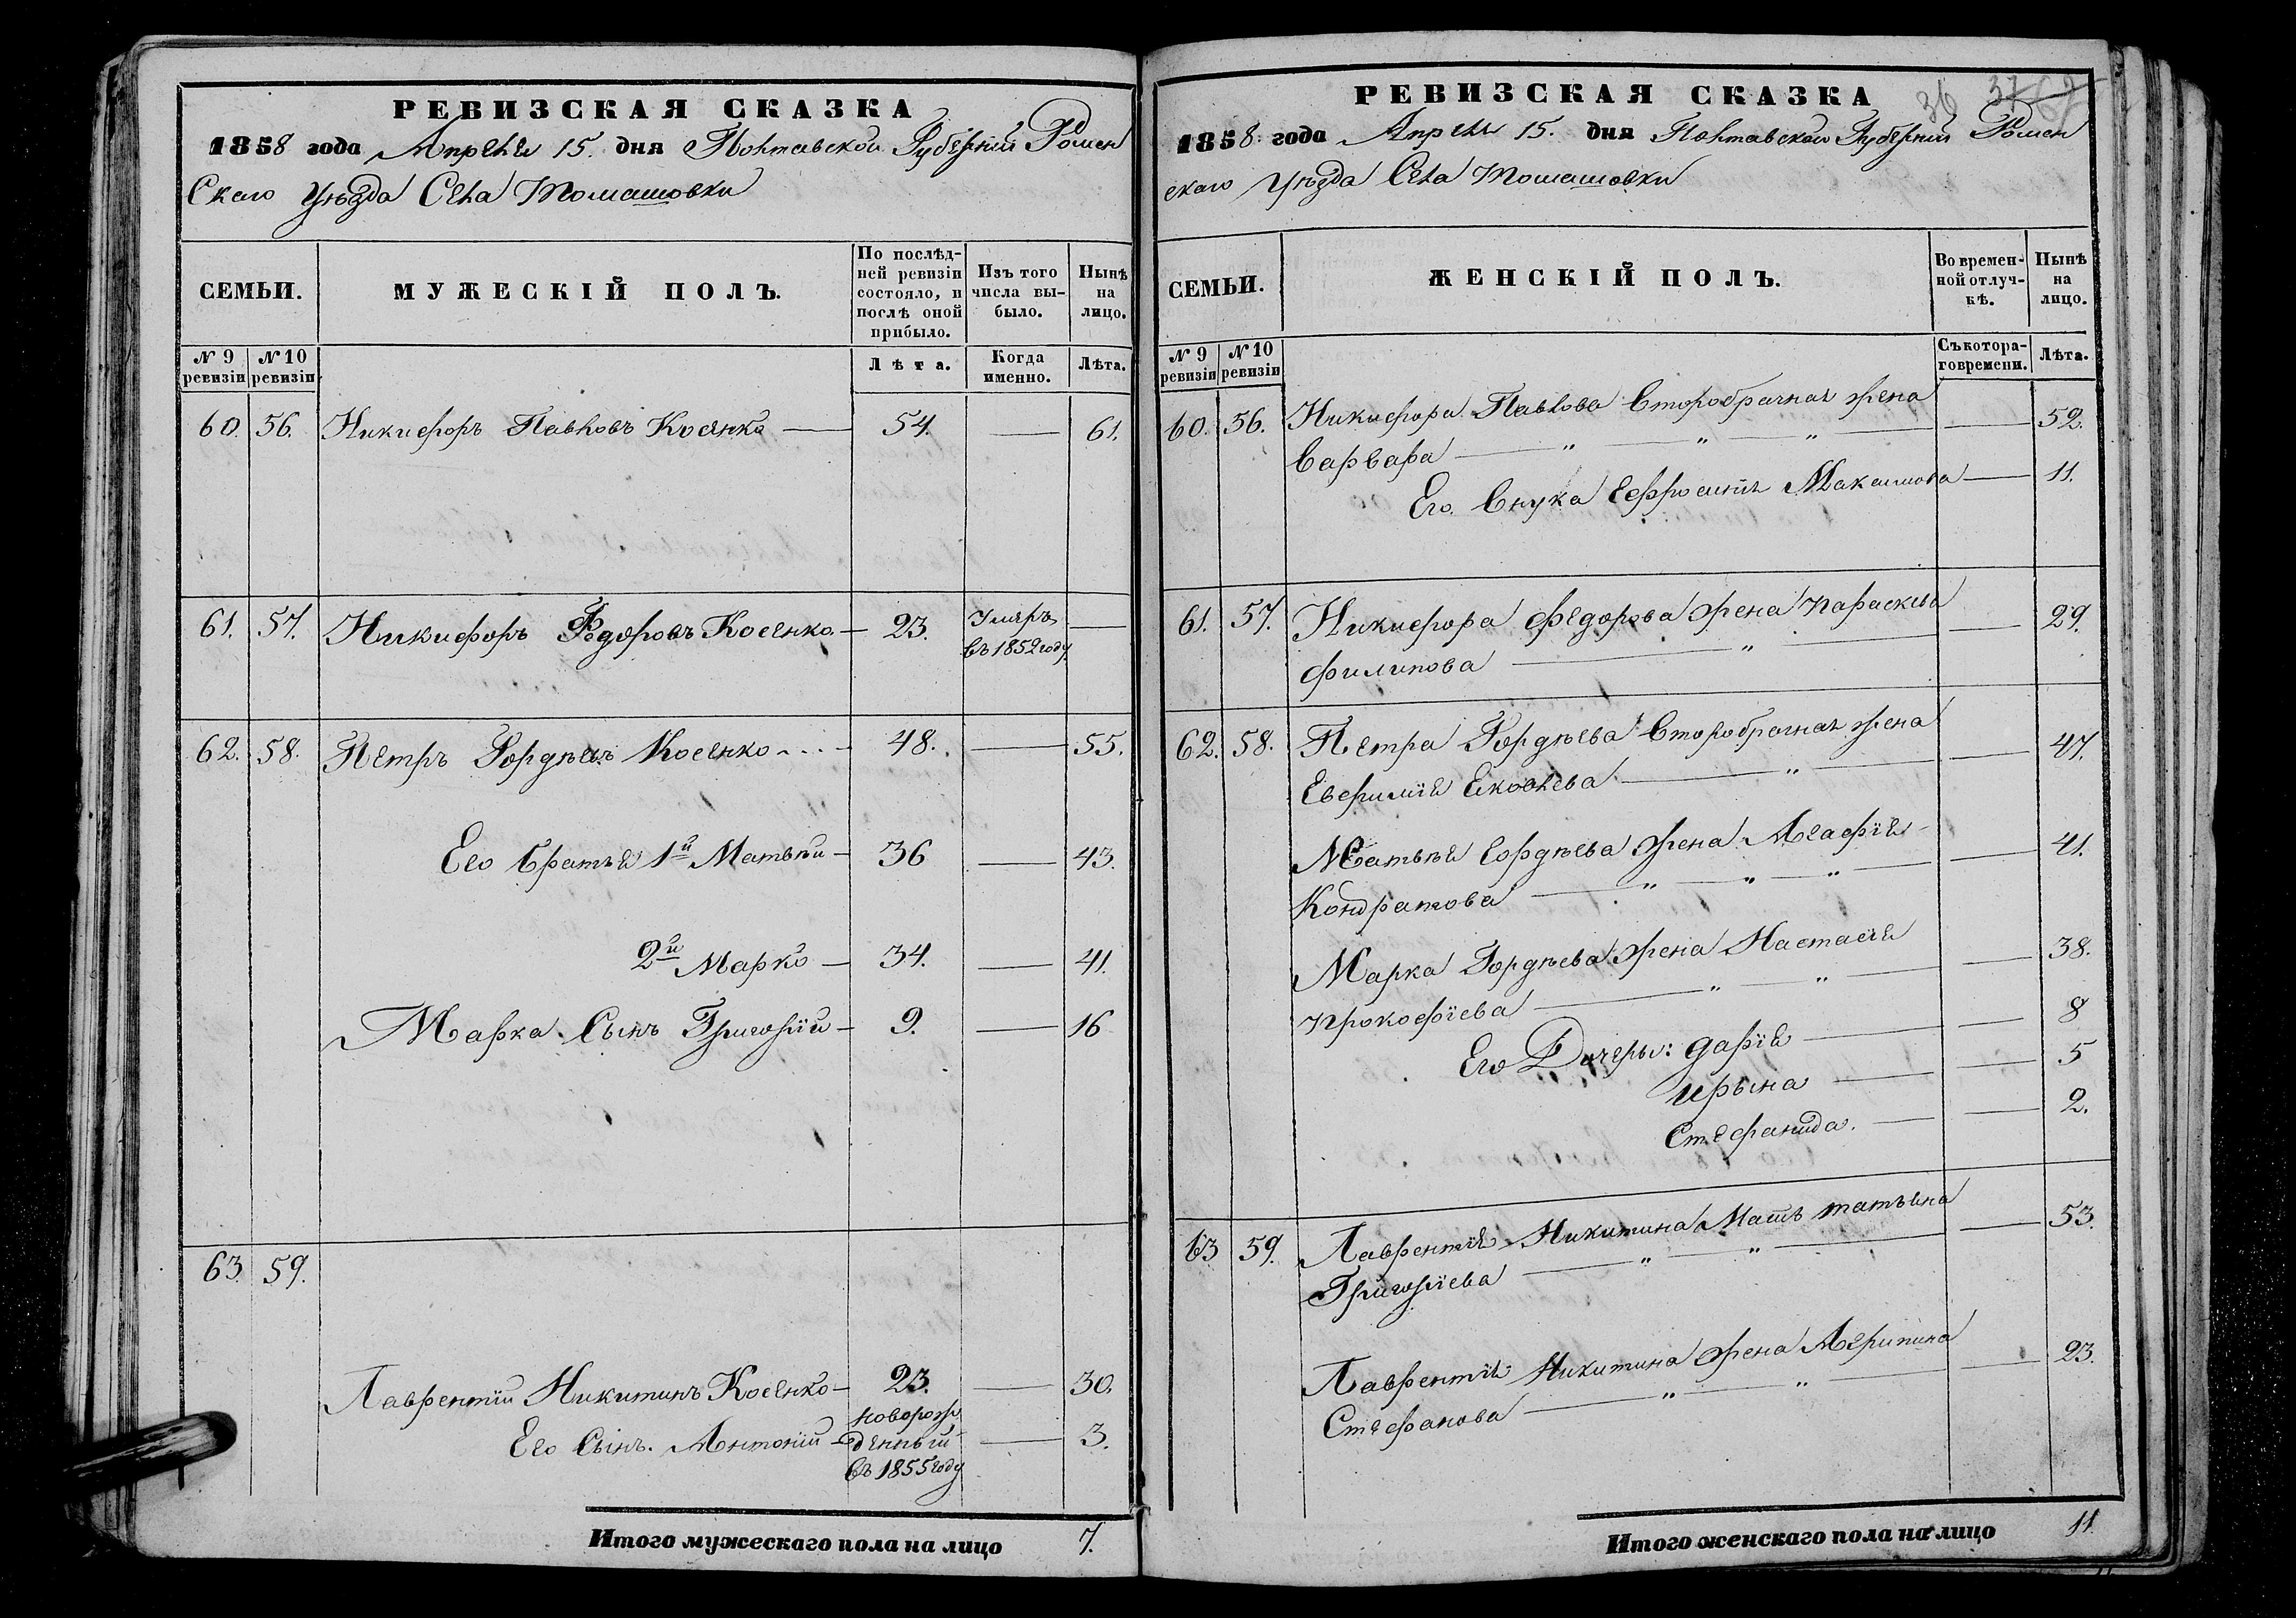 РЕВИЗСКАЯ СКАЗКА
1858 года Апреля 15. дня Полтавской Губерніи Ромен
скаго Уѣзда Села Томашовки
СЕМЬИ.
МУЖЕСКІЙ ПОЛЪ.
По послѣд-
ней ревизіи
состояло, и
послѣ оной
прибыло.
Изъ того
числа вы-
было.
Нынѣ
на
лицо.
№ 9 ревизіи
№ 10 ревизіи
Лѣта.
Когда именно.
Лѣта.
60. 56. Никифоръ Павловъ Косенко 54. 61.
61. 57. Никифоръ Федоровъ Косенко 23. Умеръ
въ 1852 году
62. 58. Петръ Гордѣевъ Косенко 48. 55.
Его братья 1й Матвѣй 36 43.
2й Марко 34. 41.
Марка Сынъ Григорій 9. 16
63. 59.
Лаврентій Никитинъ Косенко 23. 30.
Его Сынъ Антоній новорож
денный 3.
въ 1855 году
Итого мужескаго пола на лицо 7.
36 37
РЕВИЗСКАЯ СКАЗКА
1858 года Апреля 15. дня Полтавской Губерніи Ромен
скаго Уѣзда Села Томашовки
СЕМЬИ.
ЖЕНСКІЙ ПОЛЪ.
Во времен-
ной отлуч-
кѣ.
Нынѣ
на
лицо.
№ 9 ревизіи
№ 10 ревизіи
Съ котора-
го времени.
Лѣта.
60. 56. Никифора Павлова Второбрачная жена 52.
Варвара " " "
Его Внука Ефросинія Максимова 11.
61. 57. Никифора Федорова жена Параскева 29.
Филипова "
62. 58. Петра Гордѣева Второбрачная жена 47.
Евфимія Яковлева "
Матвѣя Гордѣева жена Агафія 41.
Кондратова " " "
Марка Гордѣева жена Настасія 38.
Прокофіева " "
Его Дочеры: Дарія 8
Ирына 5
Стефанида. 2.
63 59. Лаврентія Никитина Мать Татьяна 53.
Григоріева " "
Лаврентія Никитина жена Агрипина 23.
Стефанова " "
Итого женскаго пола на лицо 11